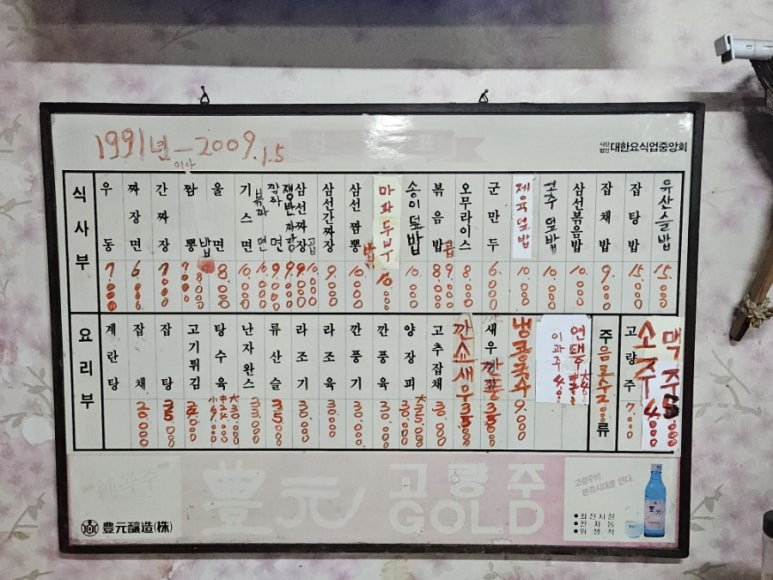 1991년 - 2009.1.5
이사
사단법인 대한요식업중앙회
식사부
우동 7.000
짜장면 6.000
간짜장 7.000
짬뽕 7.000
밥 8.000
울면 8.000
기스면 10.000
볶짜면 10.000
짬짜면 9.000
쟁반짜장 9.000
삼선짜장 9.000
곱 10.000
삼선간짜장 9.000
삼선짬뽕 밥
마파두부 10.000
송이덮밥 10.000
볶음밥 8.000
곱 9.000
오무라이스 8.000
군만두 6.000
제육덮밥 10.000
고추덮밥 10.000
삼선볶음밥 10.000
잡채밥 9.000
잡탕밥 15.000
유산슬밥 15.000
요리부
계란탕
잡채 30.000
잡탕 35.000
고기튀김
탕수육 小 中 大 30.000
난자완스 33.000
류산슬 35.000
라조기 30.000
라조육 30.000
깐풍기 30.000
깐풍육 30.000
양장피 30.000 大 35.000
고추잡채 30.000
깐쇼새우 35.000
새우깐풍 35.000
냉콩국수 9.000
이과주
연태
주류
음료수 2.000
고량주 7.000
소주 4.000
맥주 5.000
豊元 고량주 GOLD
고량주의
본격시대를 연다.
豊元釀造(株)